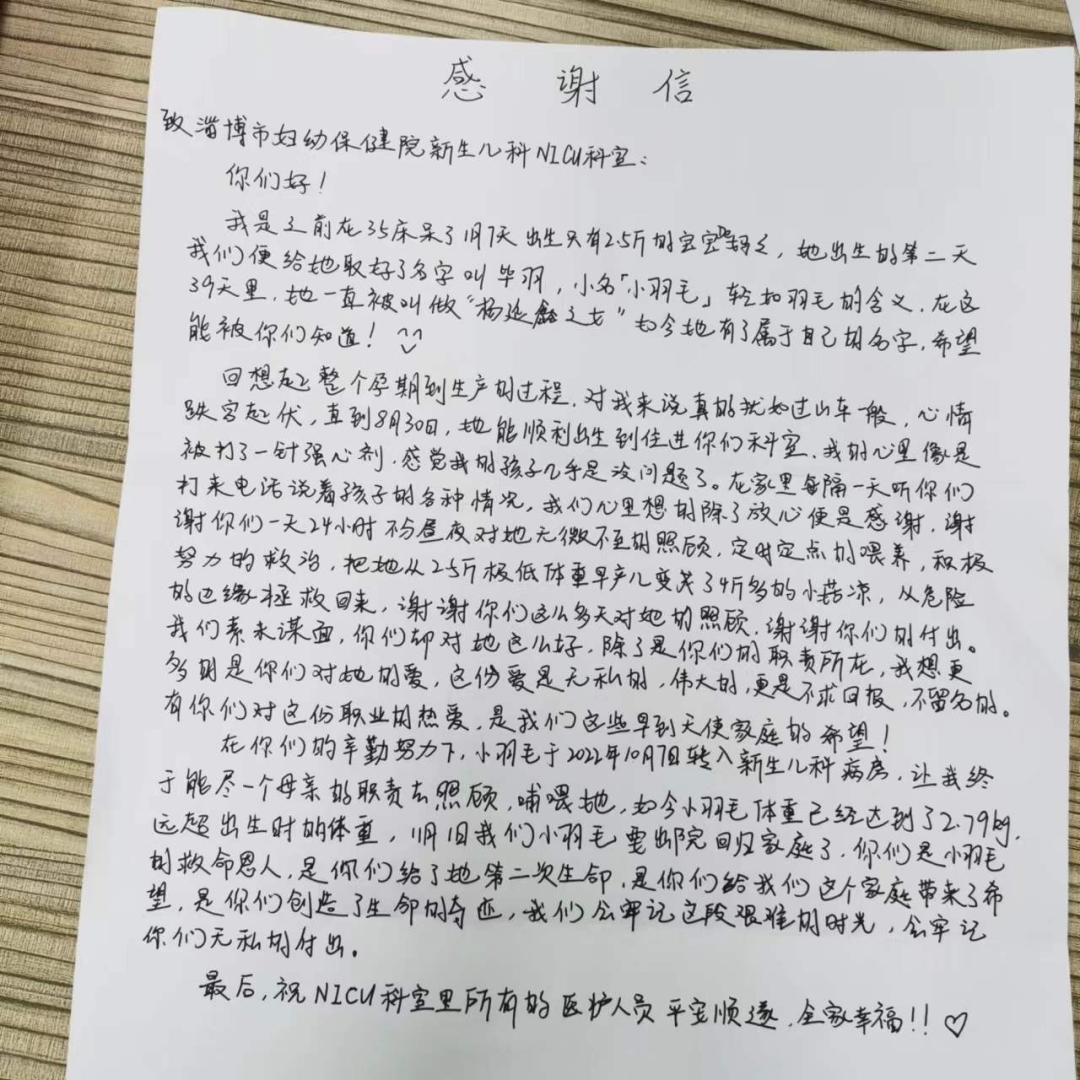 感谢信
致淄博市妇幼保健院新生儿科NICU科室:
你们好!
我是之前在35床呆了1月7天出生只有2.5斤的宝宝妈妈,她出生的第二天
我们便给她取好了名字叫毕羽,小名「小羽毛」轻如羽毛的含义,在这
39天里,她一直被叫做"杨延鑫之女"如今她有了属于自己的名字,希望
能被你们知道!
回想起整个孕期到生产的过程,对我来说真的犹如过山车一般,心情
跌宕起伏,直到8月30日,她能顺利出生到住进你们科室,我的心里像是
被打了一针强心剂,感觉我的孩子几乎是没问题了。在家里每隔一天听你们
打来电话说着孩子的各种情况,我们心里想的除了放心便是感谢,谢
谢你们一天24小时不分昼夜对她无微不至的照顾,定时定点的喂养,积极
努力的救治,把她从2.5斤极低体重早产儿变关了4斤多的小菇凉,从危险
的边缘拯救回来,谢谢你们这么多天对她的照顾,谢谢你们的付出。
我们素未谋面,你们却对她这么好,除了是你们的职责所在,我想更
多的是你们对她的爱,这份爱是无私的,伟大的,更是不求回报,不留名的。
有你们对这份职业的热爱,是我们这些早到天使家庭的希望!
在你们的辛勤努力下,小羽毛于2022年10月7日转入新生儿科病房,让我终
于能尽一个母亲的职责去照顾,哺喂她,如今小羽毛体重已经达到了2.79kg,
远超出生时的体重,11月1日我们小羽毛要出院回归家庭了,你们是小羽毛
的救命恩人,是你们给了她第二次生命,是你们给我们这个家庭带来了希
望,是你们创造了生命的奇迹,我们会牢记这段艰难的时光,会牢记
你们无私的付出。
最后,祝NICU科室里所有的医护人员平安顺遂,全家幸福!!♡